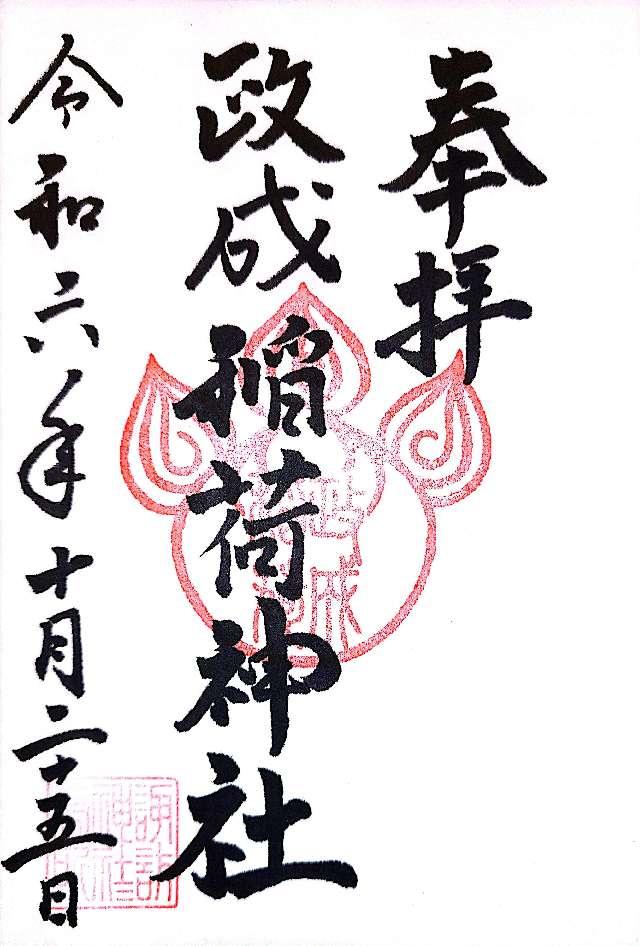 奉拝
政成稲荷神社
令和六年十月二十五日
諏訪
神社